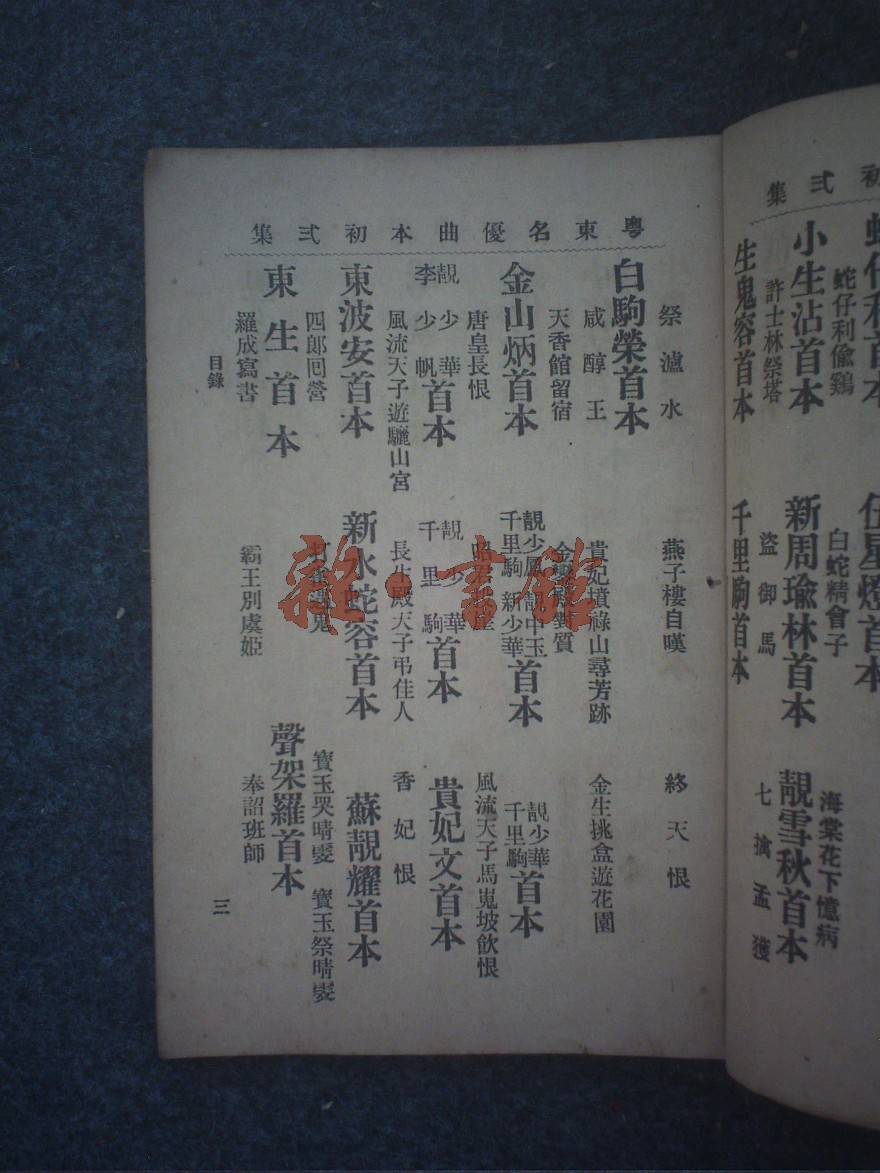 粵東名優曲本初弍集
祭瀘水
燕子樓自嘆
終天恨
白駒榮首本
咸醇王
貴妃墳祿山尋芳跡
金生挑盒遊花園
天香館留宿
金鑾殿對質
金山炳首本
靚少鳳 靚中玉 千里駒 新少華 首本
靚少華 千里駒 首本
唐皇長恨
昭君
風流天子馬嵬坡飲恨
靚少華 李少帆 首本
靚少華 千里駒 首本
貴妃文首本
風流天子遊驪山宮
長生殿天子弔佳人
香妃恨
東波安首本
新水蛇容首本
蘇靚耀首本
四郎回營
打雀遇鬼
寶玉哭晴雯 寶玉祭晴雯
東生首本
聲架羅首本
羅成寫書
霸王別虞姬
奉詔班師
目錄
三
初弍集
蛇仔利首本
伍星燈首本
蛇仔利偷鷄
白蛇精會子
海棠花下憶病
小生沾首本
新周瑜林首本
靚雪秋首本
許士林祭塔
盜御馬
七擒孟獲
生鬼容首本
千里駒首本
雜·書館